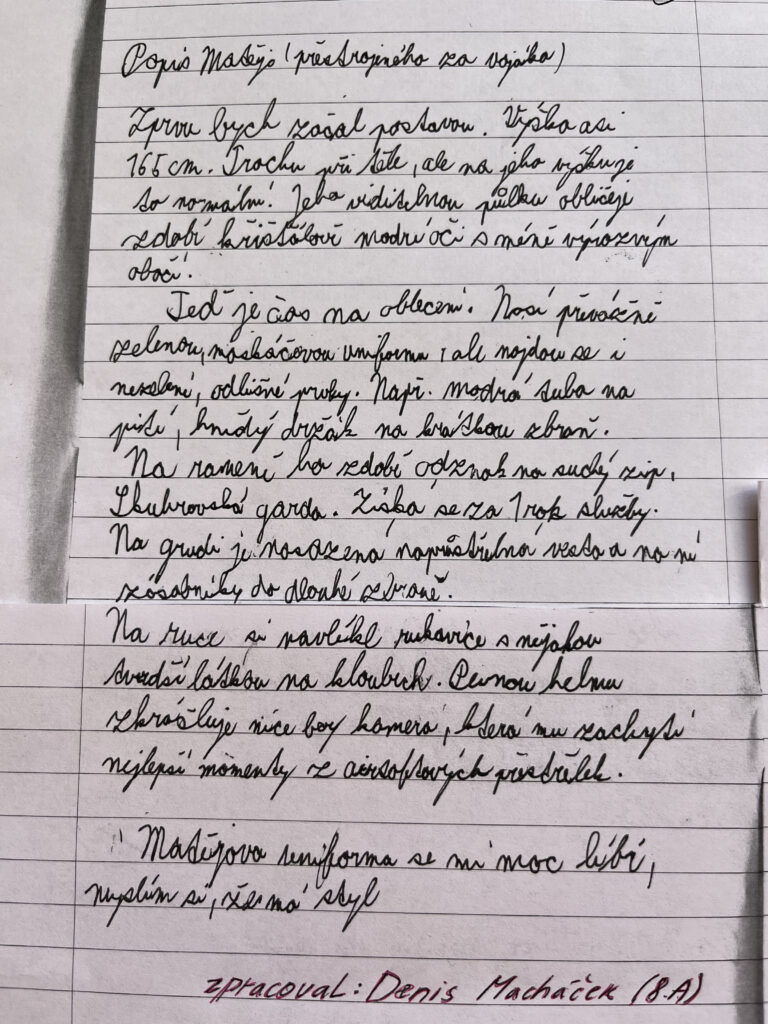 Popis Matěje (přestrojeného za vojáka)
Zprvu bych začal postavou. Výška asi
165 cm. Trochu při těle, ale na jeho výšku je
to normální. Jeho viditelnou půlku obličeje
zdobí křišťálově modré oči s méně výrazným
obočí.
Teď je čas na oblečení. Nosí převážně
zelenou, maskáčovou uniformu, ale najdou se i
nezelené, odlišné prvky. Např. modrá tuba na
pití, hnědý držák na krátkou zbraň.
Na rameni ho zdobí odznak na suchý zip,
Skuhrovská garda. Získá se za 1 rok služby.
Na hrudi je nasazená neprůstřelná vesta a na ní
zásobníky do dlouhé zbraně.
Na ruce si navlékl rukavice s nějakou
tvrdší látkou na kloubech. Pevnou helmu
zkrášluje kamera, která mu zachytí
nejlepší momenty z airsoftových přestřelek.
Matějova uniforma se mi moc líbí,
myslím si, že má styl
zpracoval: Denis Macháček (8.A)